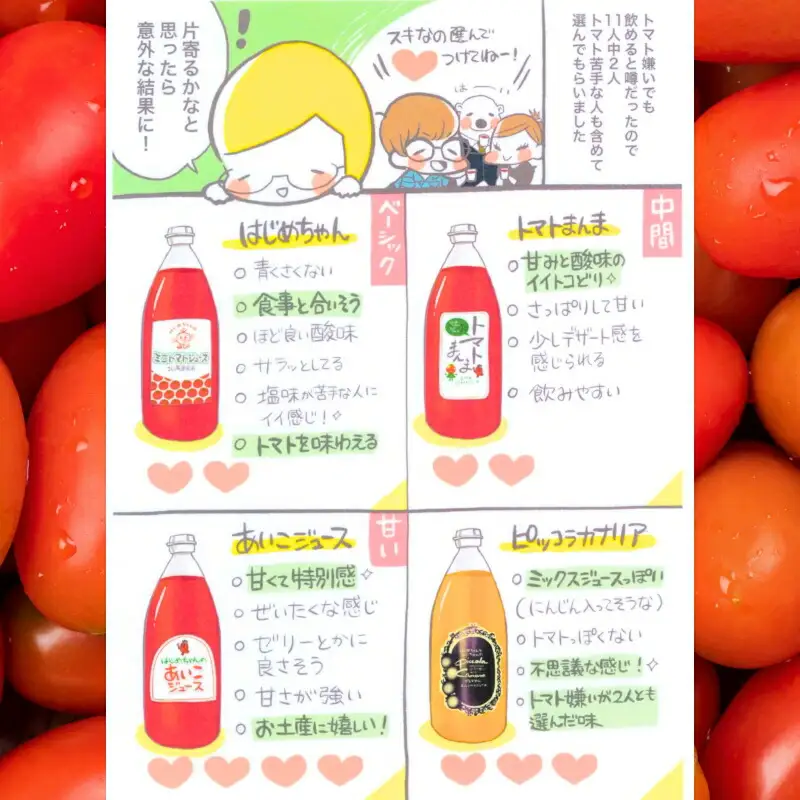 トマト嫌いでも
飲めると噂だったので
11人中2人
トマト苦手な人も含めて
選んでもらいました
スキなの選んで
つけてねー!
はーい
!
片寄るかなと
思ったら
意外な結果に!
ベーシック
はじめちゃん
青くさくない
食事と合いそう
ほど良い酸味
サラッとしてる
塩味が苦手な人に
イイ感じ!
トマトを味わえる
ミニトマトジュース
中間
トマトまんま
甘みと酸味の
イイトコどり
さっぱりして甘い
少しデザート感を
感じられる
飲みやすい
トマト
まんま
甘い
あいこジュース
甘くて特別感
ぜいたくな感じ
ゼリーとかに
良さそう
甘さが強い
お土産に嬉しい!
はじめちゃんの
あいこ
ジュース
ピッコラカナリア
ミックスジュースっぽい
(にんじん入ってそうな)
トマトっぽくない
不思議な感じ!
トマト嫌いが2人とも
選んだ味